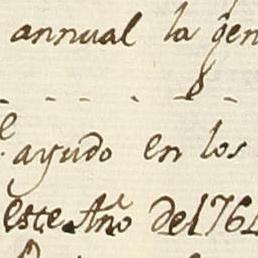 annual la gen
8
- - - - - -
e ayudo en los
este Año del 1764